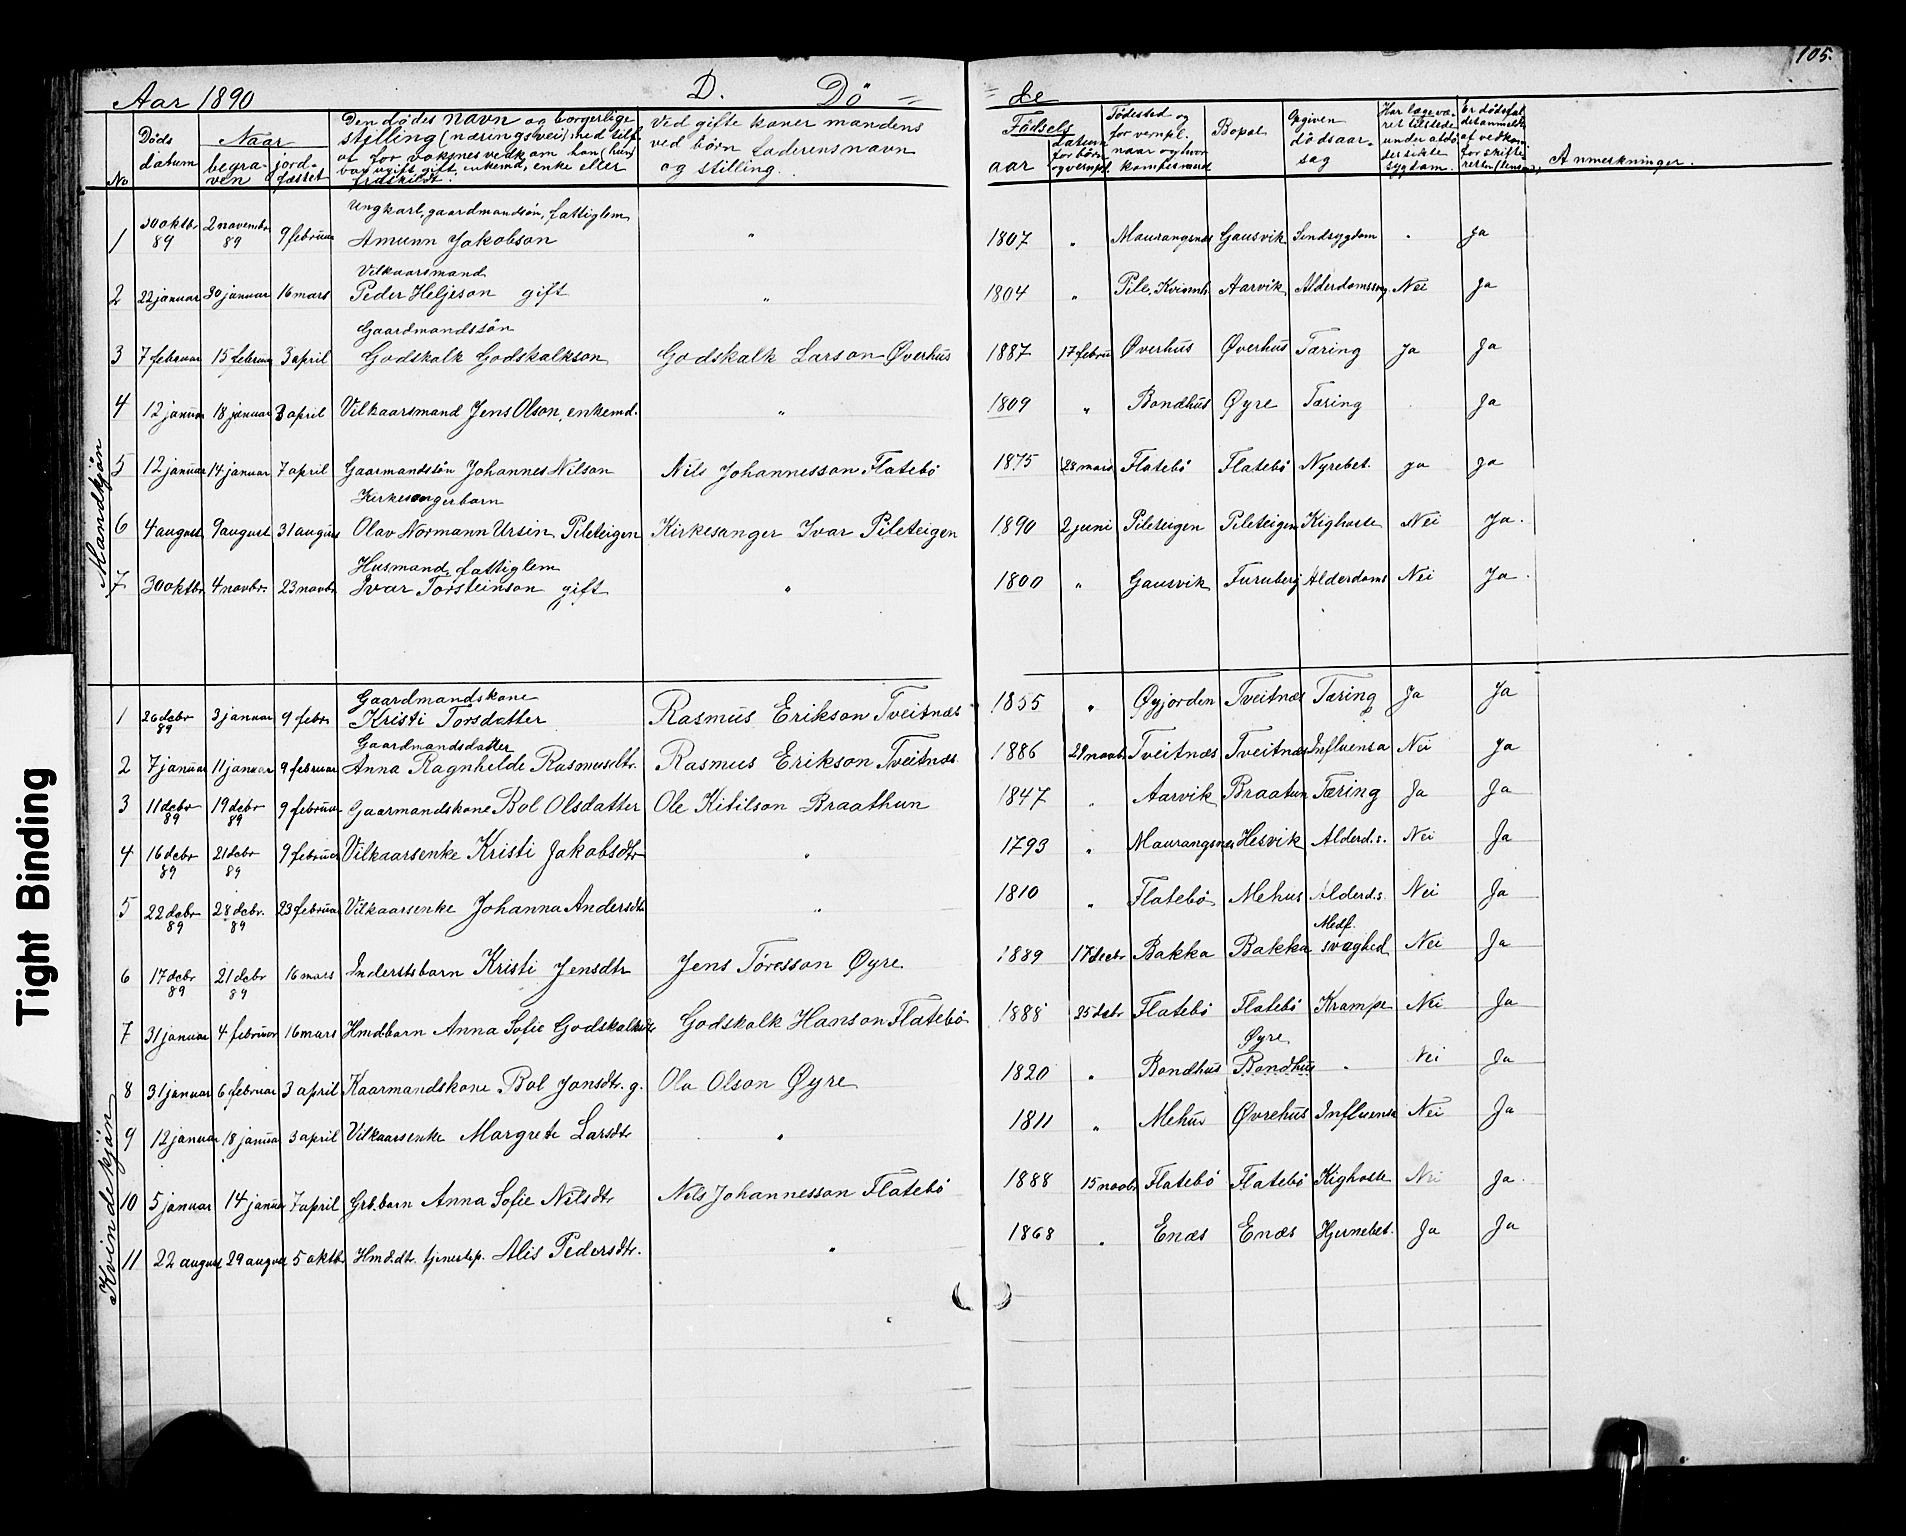 105.
Aar 1890 D. Dö = = de
No Döds datum Naar begraven jordfæstet Den dødes navn og borgerlige stilling (næringsvei) med tilf. af for voksnes vedkom. han (hun) var ugift, gift, enkemd, enke eller fraskildt. Ved gifte koner mandens ved börn faderens navn og stilling. Födsels aar datum for börn Födested og bopæl Opgiven dödsaarsag Har læge været tilstede under dödes sidste sygdom. Er dödsfaldet anmeldt af vedkom. for skifteretten Anmerkninger.
Mandkjön
Ungkarl, gaardmandsön, fattiglem
1 30 oktbr 89 2 novembr 89 9 februar Amunn Jakobson " 1807 " Maurangsnæs Gausvik Sindsygdom " Ja
Vilkaarsmand
2 22 januar 30 januar 16 mars Peder Heljeson gift " 1804 " Pile, Kvinnh. Aarvik Alderdomssvag Nei Ja
Gaardmandssön
3 7 februar 15 februar 3 april Godskalk Godskalkson Godskalk Larson Øverhus 1887 17 febru Øverhus Øverhus Tæring Ja Ja
4 12 januar 18 januar 3 april Vilkaarsmand Jens Olson, enkemd. " 1809 " Bondhus Øyre Tæring Ja
5 12 januar 14 januar 7 april Gaarmandssön Johannes Nilson Nils Johannesson Flatebö 1875 28 mars Flatebö Flatebö Nyrebet. Ja Ja
Kirkesangerbarn
6 4 august 9 august 31 august Olav Normann Ursin Pileteigen Kirkesanger Ivar Pileteigen 1890 2 juni Pileteigen Pileteigen Kighoste Nei Ja.
Husmand, fattiglem
7 30 oktbr. 4 novbr. 23 novbr Ivar Torsteinson gift " 1800 " Gausvik Furuberg Alderdoms Nei Ja.
Kvindekjön
Gaardmandskone
1 26 debr 89 3 januar 9 febr. Kristi Torsdatter Rasmus Erikson Tveitnæs 1855 " Øyjorden Tveitnæs Tæring Ja Ja
Gaardmandsdatter
2 7 januar 11 januar 9 februar Anna Ragnhilde Rasmusdtr. Rasmus Erikson Tveitnæs 1886 29 novbr. Tveitnæs Tveitnæs Influensa Nei Ja
3 11 debr 89 19 debr 89 9 februar Gaarmandskone Bol Olsdatter Ole Kitilson Braathun 1847 " Aarvik Braatun Tæring Ja Ja
4 16 debr 89 21 debr 89 9 februar Vilkaarsenke Kristi Jakobsdtr " 1793 " Maurangsnes Hesvik Alderd.s. Nei Ja
5 22 debr 89 28 debr. 89 23 februar Vilkaarsenke Johanna Andersdtr " 1810 " Flatebö Mehus Alderd.s. Nei Ja
6 17 debr 89 21 debr 89 16 mars Inderstsbarn Kristi Jensdtr Jens Töresson Øyre 1889 17 decbr Bakka Bakka Medf. svaghed Nei Ja
7 31 januar 4 februar 16 mars Hmdbarn Anna Sofie Godskalksdtr Godskalk Hanson Flatebö 1888 25 debr Flatebö Flatebö Krampe Nei Ja
8 31 januar 6 februar 3 april Kaarmandskone Bol Jonsdtr. g. Ola Olson Øyre 1820 " Bondhus Øyre Bondhus " Nei Ja
9 12 januar 18 januar 3 april Vilkaarsenke Margrete Larsdtr " 1811 " Mehus Øvrehus Influensa Nei Ja
10 5 januar 14 januar 7 april Grd.barn Anna Sofie Nilsdtr Nils Johannesson Flatebö 1888 15 novbr. Flatebö Flatebö Kighoste Nei Ja.
11 22 august 29 august 5 oktbr Hmd.dtr. tjenestep. Alis Pedersdtr. " 1868 " Enæs Enæs Hjernebet. Ja Ja
Tight Binding